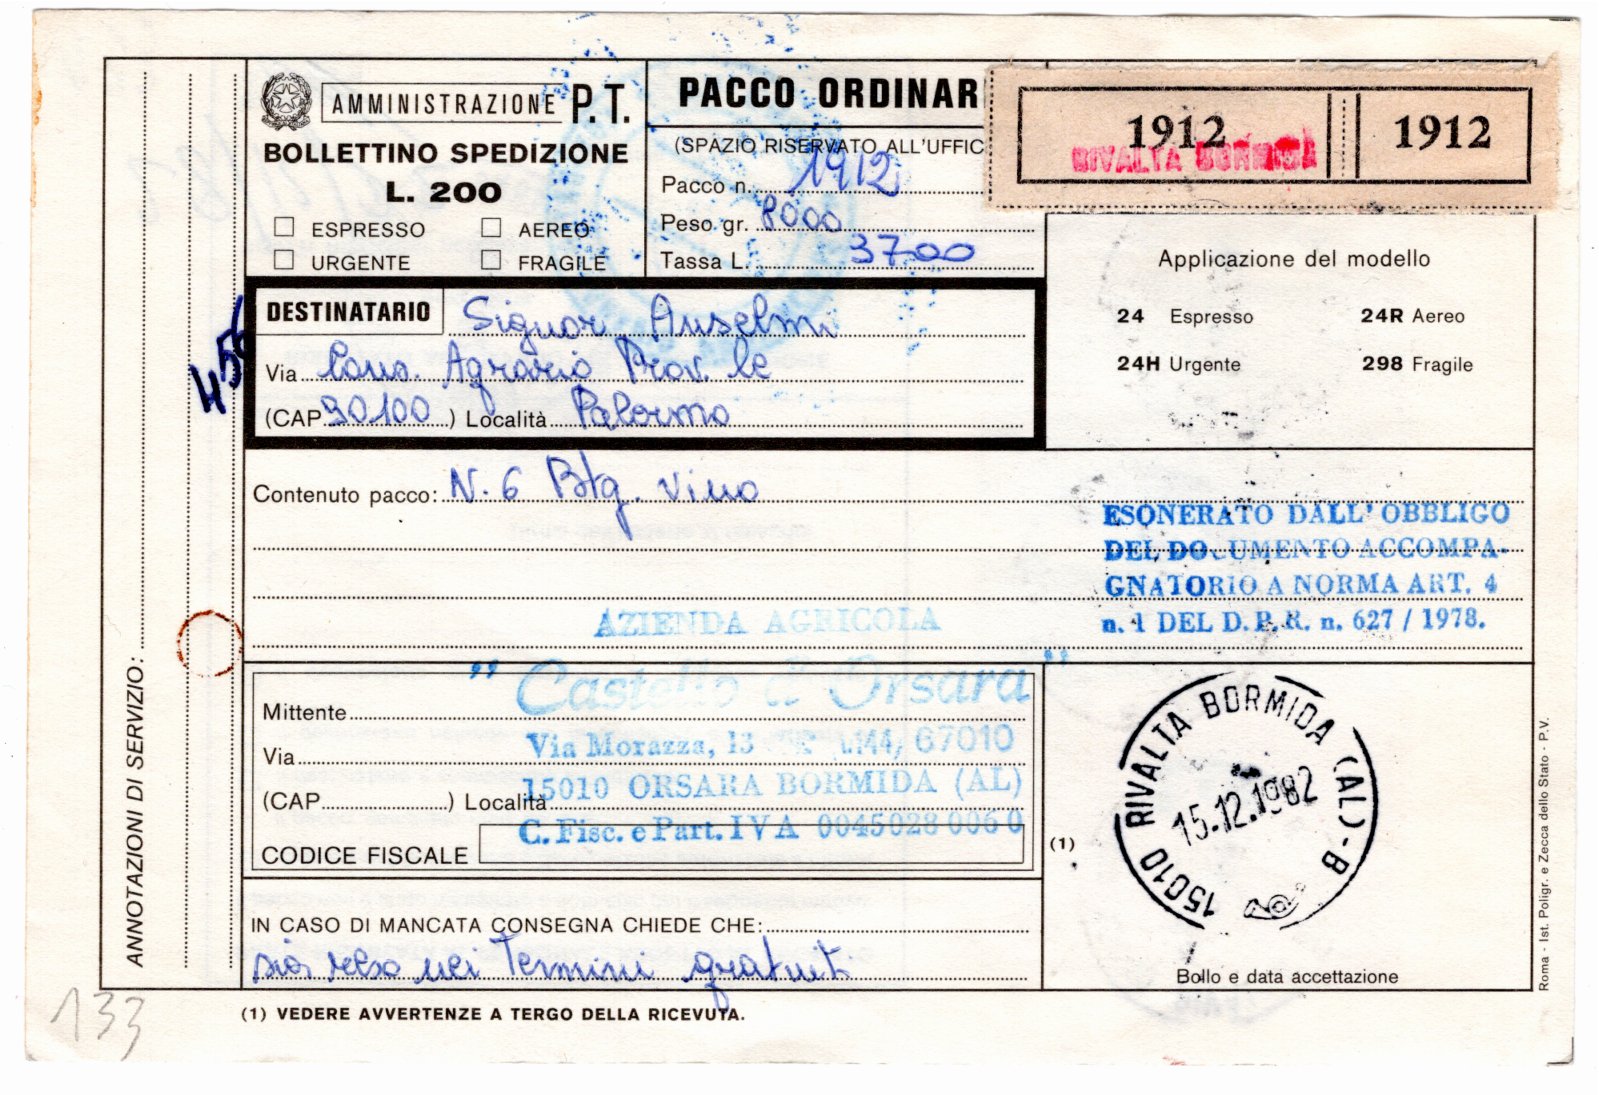 AMMINISTRAZIONE P.T.
BOLLETTINO SPEDIZIONE
L. 200
ESPRESSO AEREO
URGENTE FRAGILE
PACCO ORDINAR
(SPAZIO RISERVATO ALL'UFFIC
Pacco n. 1912
Peso gr. 8000
Tassa L. 3700
1912 1912
RIVALTA BORMIDA
Applicazione del modello
24 Espresso 24R Aereo
24H Urgente 298 Fragile
DESTINATARIO Signor Anselmi
Via Cons. Agrario Prov. le
(CAP 90100) Località Palermo
456
Contenuto pacco: N. 6 Btg. vino
ESONERATO DALL'OBBLIGO
DEL DOCUMENTO ACCOMPA-
GNATORIO A NORMA ART. 4
n. 1 DEL D.P.R. n. 627 / 1978.
AZIENDA AGRICOLA
"Castello d'Orsara"
Mittente
Via Via Morazza, 13 144, 67010
(CAP ) Località 15010 ORSARA BORMIDA (AL)
C. Fisc. e Part. IVA 0045028 006 0
CODICE FISCALE
(1)
15010 RIVALTA BORMIDA (AL) - B
15.12.1982
Bollo e data accettazione
IN CASO DI MANCATA CONSEGNA CHIEDE CHE:
sia reso nei Termini gratuiti
(1) VEDERE AVVERTENZE A TERGO DELLA RICEVUTA.
ANNOTAZIONI DI SERVIZIO:
Roma - Ist. Poligr. e Zecca dello Stato - P.V.
133